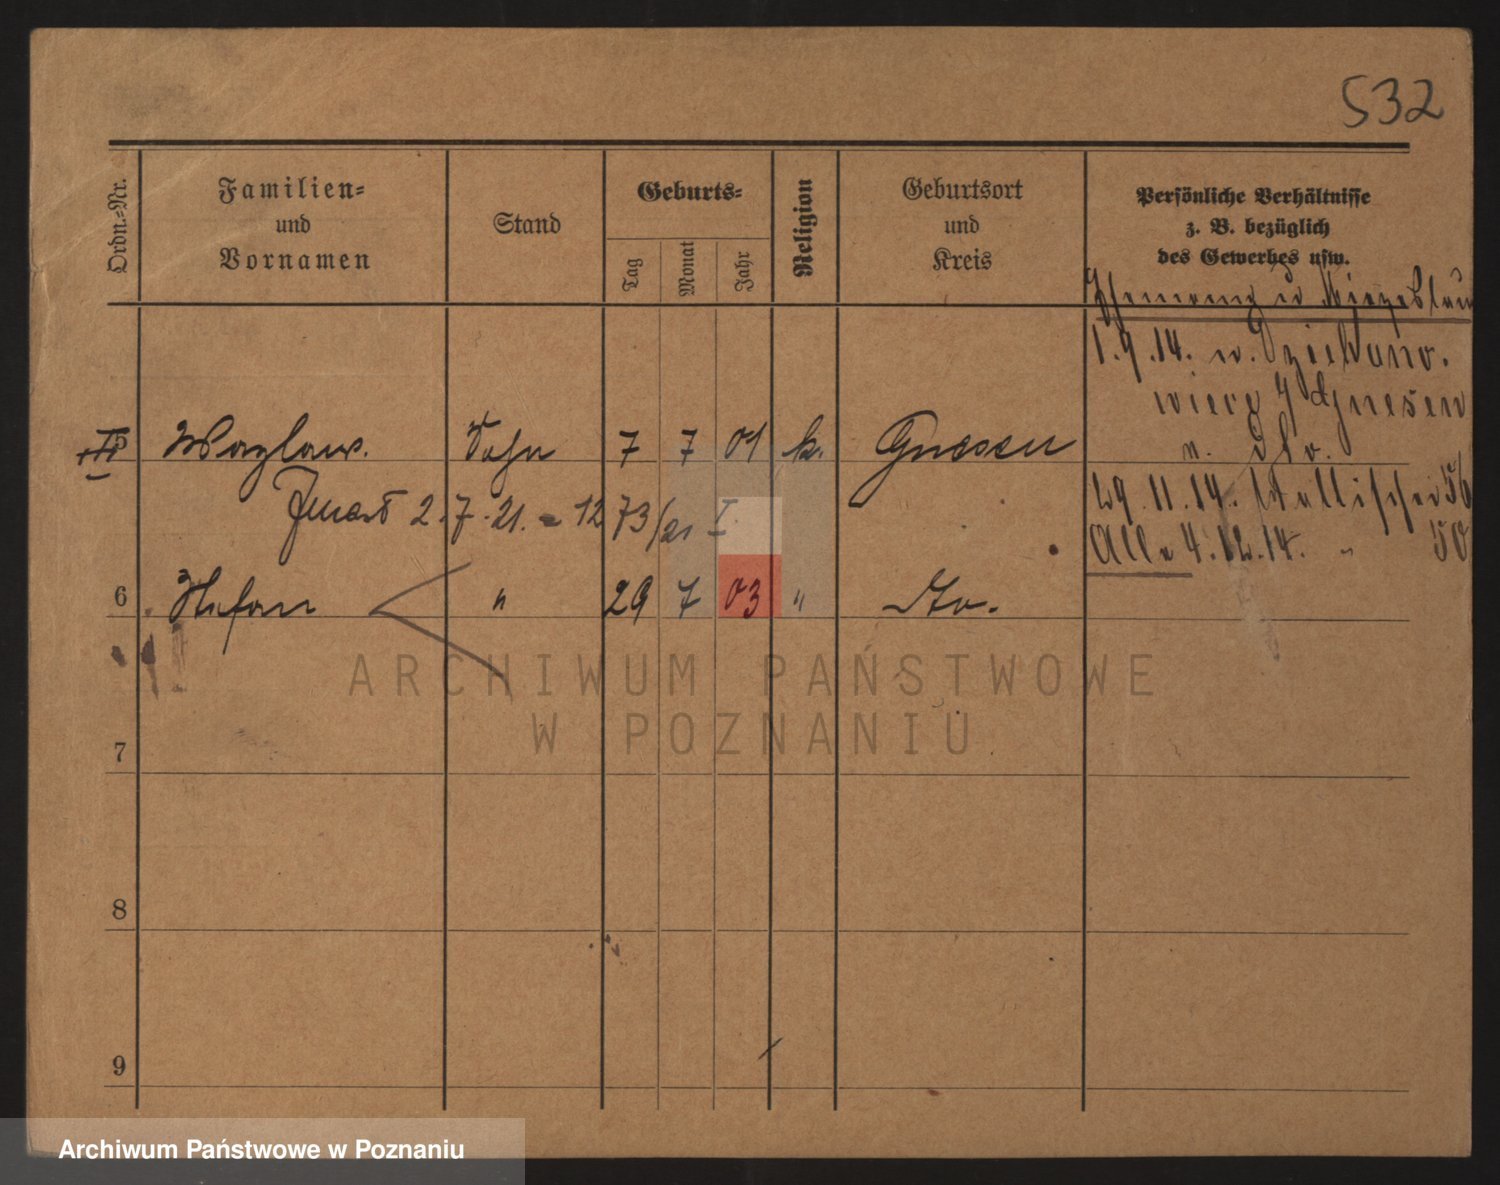 532
Ordn.-Nr.
Familien-
und
Vornamen
Stand
Geburts-
Tag
Monat
Jahr
Religion
Geburtsort
und
Kreis
Persönliche Verhältnisse
z. B. bezüglich
des Gewerbes usw.
1.9.14. w.
Gnesen
5 Wazlaw. Sohn 7 7 01 k. Gnesen
2.7.21. = 1273/21 I.
29.11.14. 56
4.12.14. " 50
6 Stefan " 29 7 03 " Do.
ARCHIWUM PAŃSTWOWE
W POZNANIU
7
8
9
Archiwum Państwowe w Poznaniu